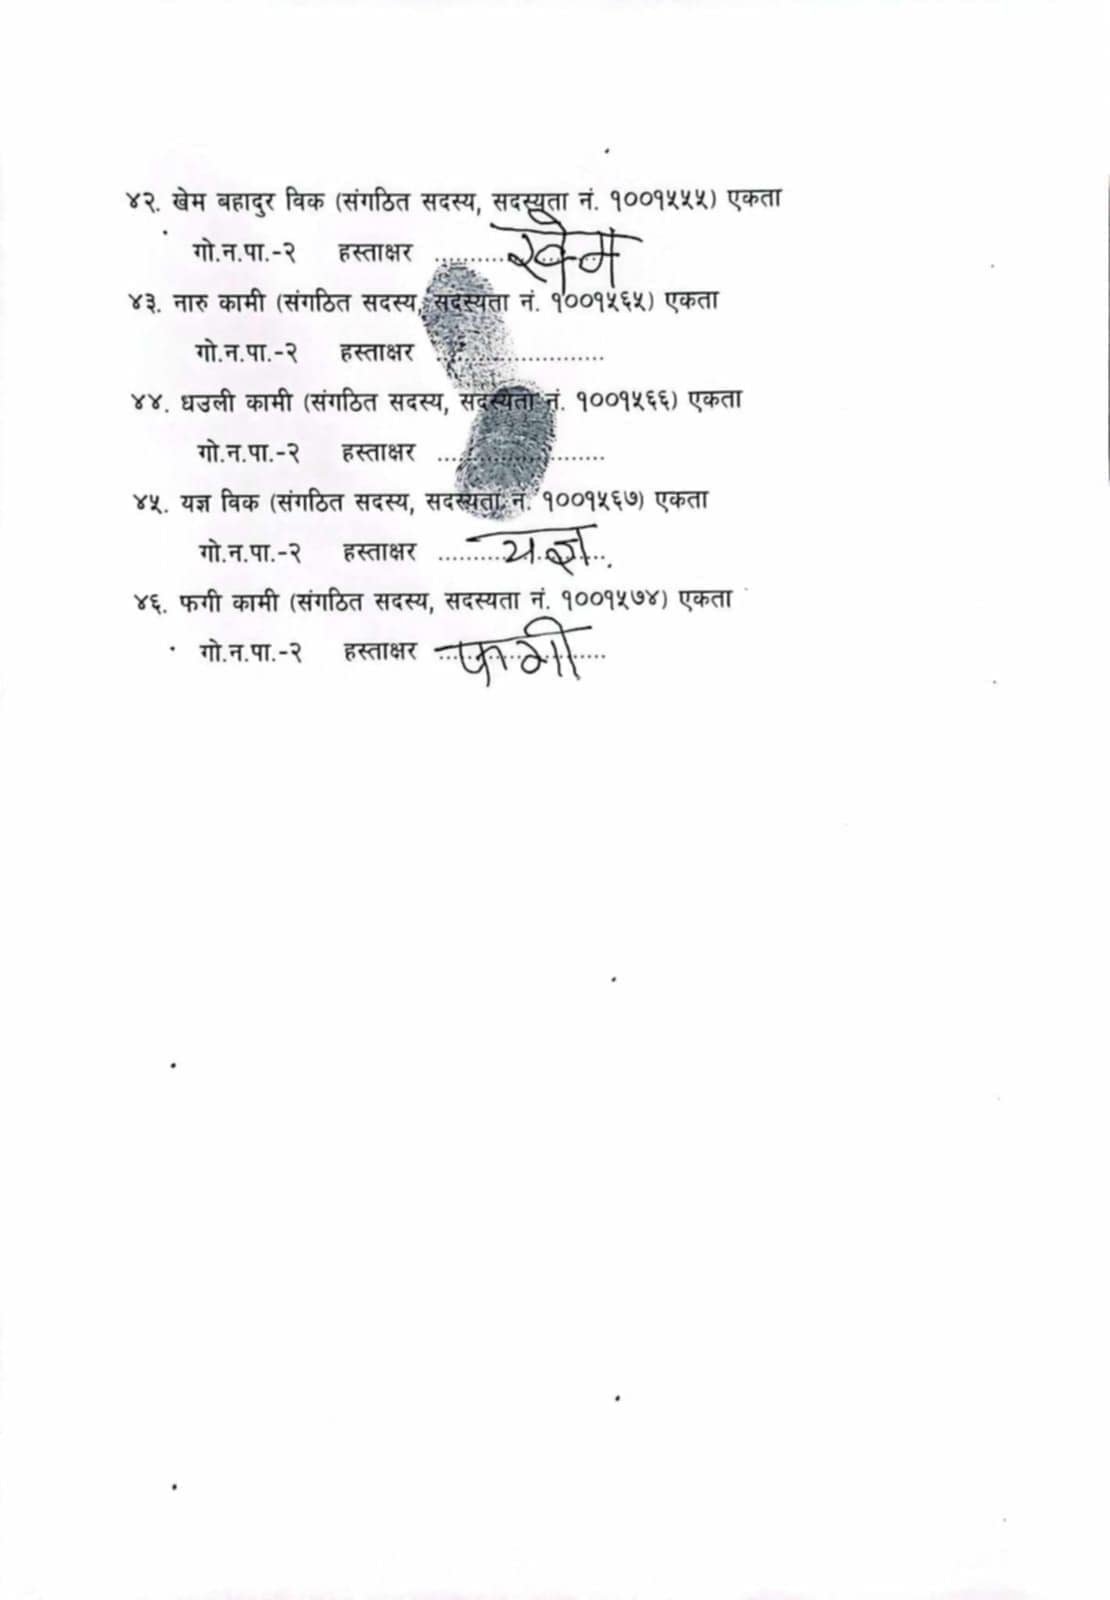 ४२. खेम बहादुर विक (संगठित सदस्य, सदस्यता नं. १००१५५५) एकता
गो.न.पा.-२ हस्ताक्षर .......... खेम
४३. नारु कामी (संगठित सदस्य, सदस्यता नं. १००१५६५) एकता
गो.न.पा.-२ हस्ताक्षर ..........................
४४. धउली कामी (संगठित सदस्य, सदस्यता नं. १००१५६६) एकता
गो.न.पा.-२ हस्ताक्षर ..........................
४५. यज्ञ विक (संगठित सदस्य, सदस्यता नं. १००१५६७) एकता
गो.न.पा.-२ हस्ताक्षर .......... यज्ञ
४६. फगी कामी (संगठित सदस्य, सदस्यता नं. १००१५७४) एकता
गो.न.पा.-२ हस्ताक्षर .......... फगी